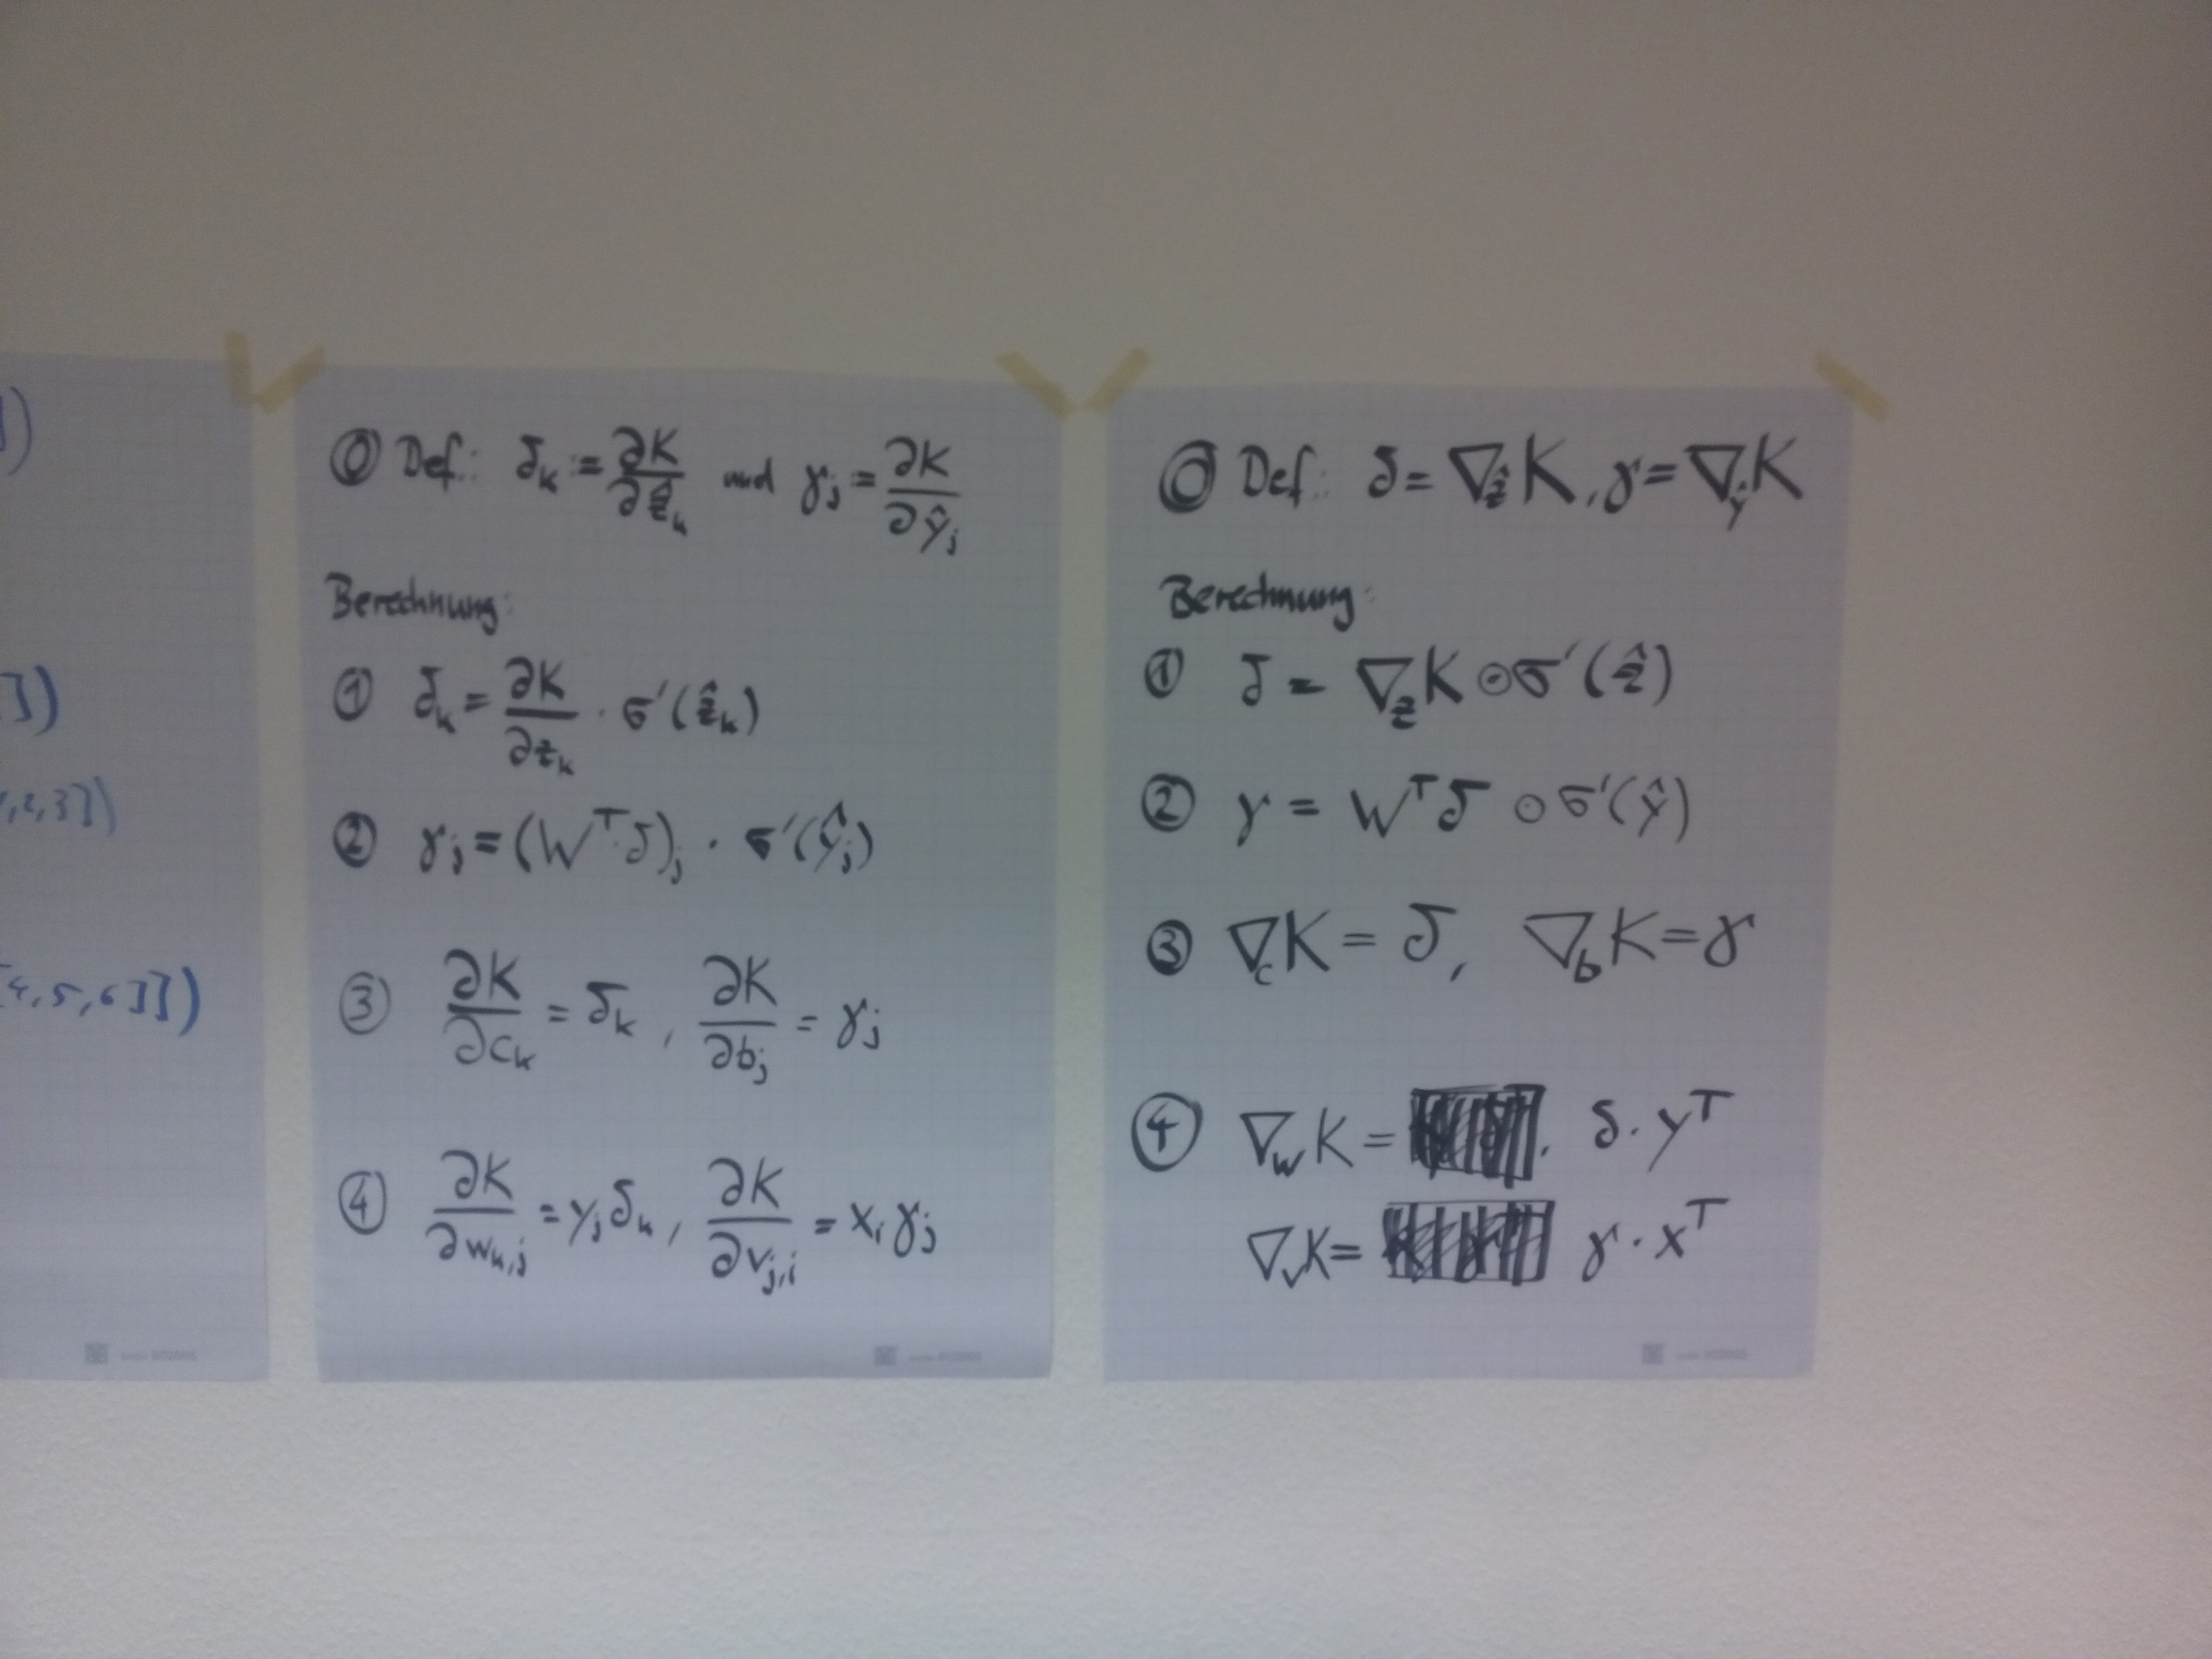 )
])
,2,3])
[4,5,6]])
⓪ Def.: δₖ := ∂K/∂ẑₖ und γⱼ = ∂K/∂ŷⱼ
Berechnung:
① δₖ = ∂K/∂zₖ · σ'(ẑₖ)
② γⱼ = (Wᵀδ)ⱼ · σ'(ŷⱼ)
③ ∂K/∂cₖ = δₖ , ∂K/∂bⱼ = γⱼ
④ ∂K/∂wₖ,ⱼ = yⱼδₖ , ∂K/∂vⱼ,ᵢ = xᵢγⱼ
⓪ Def.: δ = ∇_ẑ K , γ = ∇_ŷ K
Berechnung:
① δ = ∇_z K ⊙ σ'(ẑ)
② γ = Wᵀδ ⊙ σ'(ŷ)
③ ∇_c K = δ , ∇_b K = γ
④ ∇_W K = δ · yᵀ
∇_V K = γ · xᵀ